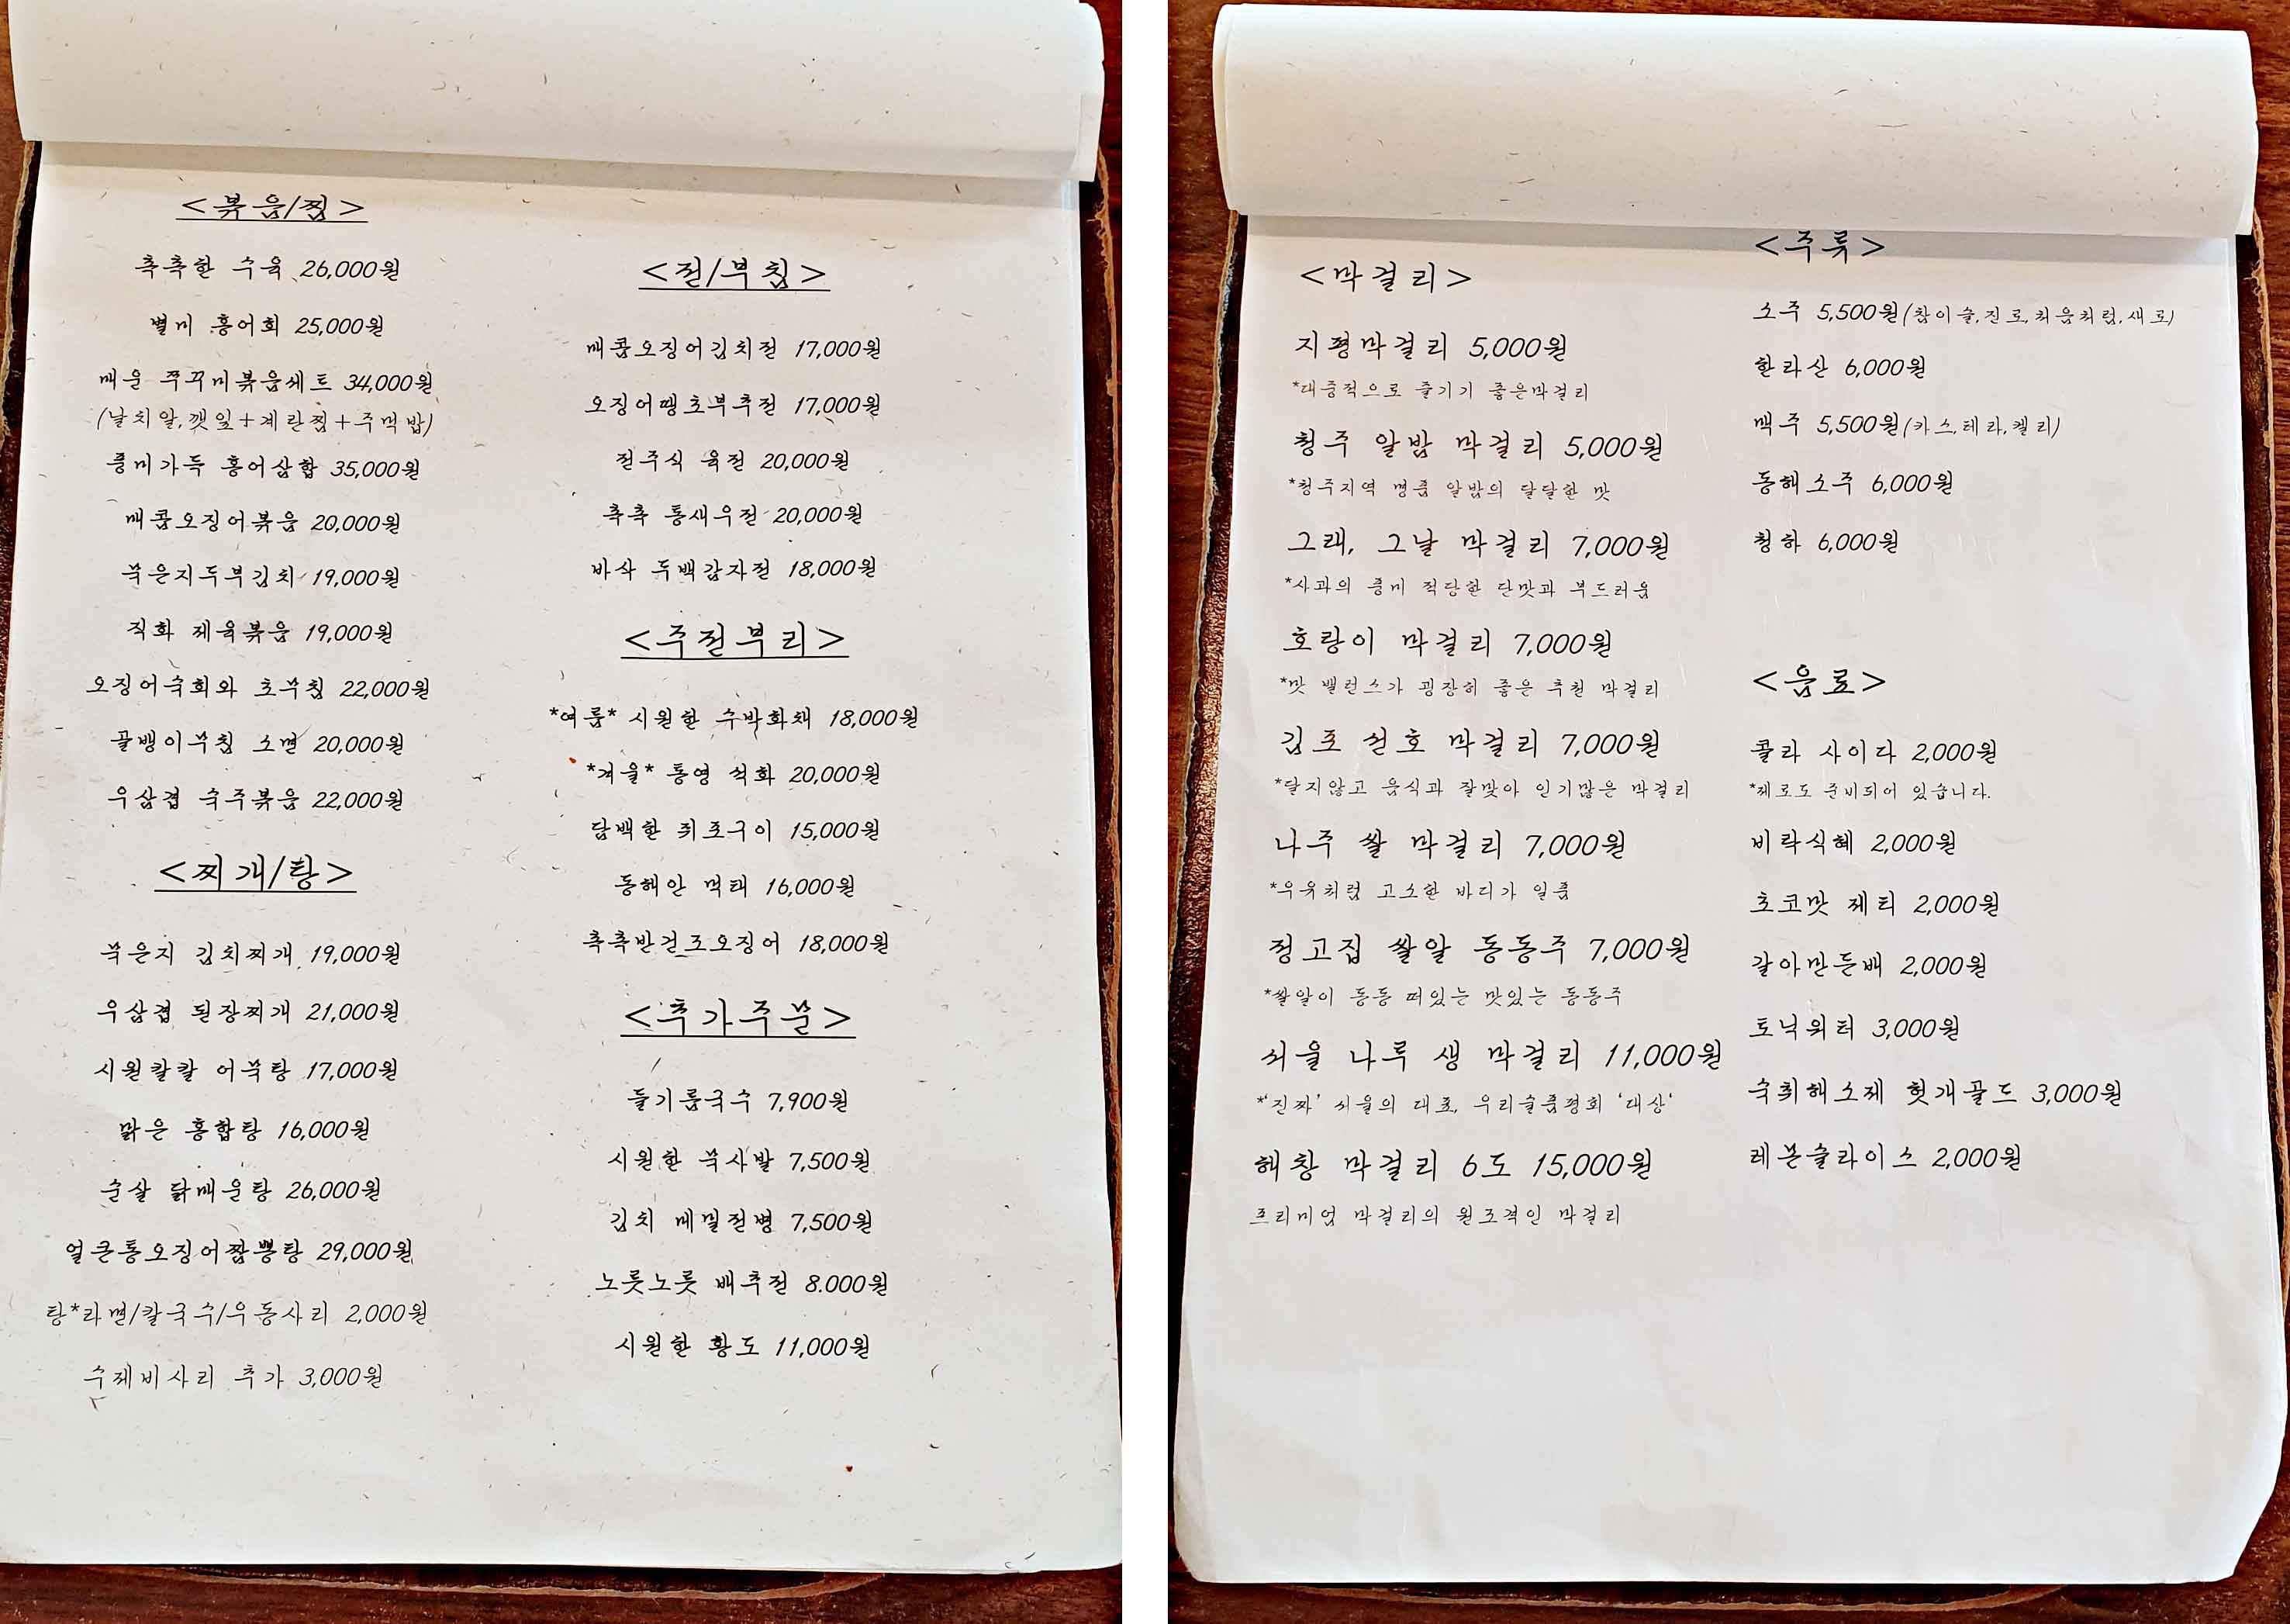 <볶음/찜>
촉촉한 수육 26,000원
별미 홍어회 25,000원
매운 쭈꾸미볶음세트 34,000원
(날치알,깻잎+계란찜+주먹밥)
풍미가득 홍어삼합 35,000원
매콤오징어볶음 20,000원
묵은지두부김치 19,000원
직화 제육볶음 19,000원
오징어숙회와 초무침 22,000원
골뱅이무침 소면 20,000원
우삼겹 숙주볶음 22,000원
<찌개/탕>
묵은지 김치찌개 19,000원
우삼겹 된장찌개 21,000원
시원칼칼 어묵탕 17,000원
맑은 홍합탕 16,000원
순살 닭매운탕 26,000원
얼큰통오징어짬뽕탕 29,000원
탕*라면/칼국수/우동사리 2,000원
수제비사리 추가 3,000원
<전/부침>
매콤오징어김치전 17,000원
오징어땡초부추전 17,000원
전주식 육전 20,000원
촉촉 통새우전 20,000원
바삭 두백감자전 18,000원
<주전부리>
*여름* 시원한 수박화채 18,000원
*겨울* 통영 석화 20,000원
담백한 쥐포구이 15,000원
동해안 먹태 16,000원
촉촉반건조오징어 18,000원
<추가주문>
들기름국수 7,900원
시원한 묵사발 7,500원
김치 메밀전병 7,500원
노릇노릇 배추전 8.000원
시원한 황도 11,000원
<막걸리>
지평막걸리 5,000원
*대중적으로 즐기기 좋은막걸리
청주 알밤 막걸리 5,000원
*청주지역 명품 알밤의 달달한 맛
그래, 그날 막걸리 7,000원
*사과의 풍미 적당한 단맛과 부드러움
호랑이 막걸리 7,000원
*맛 밸런스가 굉장히 좋은 추천 막걸리
김포 선호 막걸리 7,000원
*달지않고 음식과 잘맞아 인기많은 막걸리
나주 쌀 막걸리 7,000원
*우유처럼 고소한 바디가 일품
정고집 쌀알 동동주 7,000원
*쌀알이 동동 떠있는 맛있는 동동주
서울 나루 생 막걸리 11,000원
*'진짜' 서울의 대표, 우리술품평회 '대상'
해창 막걸리 6도 15,000원
프리미엄 막걸리의 원조격인 막걸리
<주류>
소주 5,500원(참이슬,진로,처음처럼,새로)
한라산 6,000원
맥주 5,500원(카스,테라,켈리)
동해소주 6,000원
청하 6,000원
<음료>
콜라 사이다 2,000원
*제로도 준비되어 있습니다.
비락식혜 2,000원
초코맛 제티 2,000원
갈아만든배 2,000원
토닉워터 3,000원
숙취해소제 헛개골드 3,000원
레몬슬라이스 2,000원